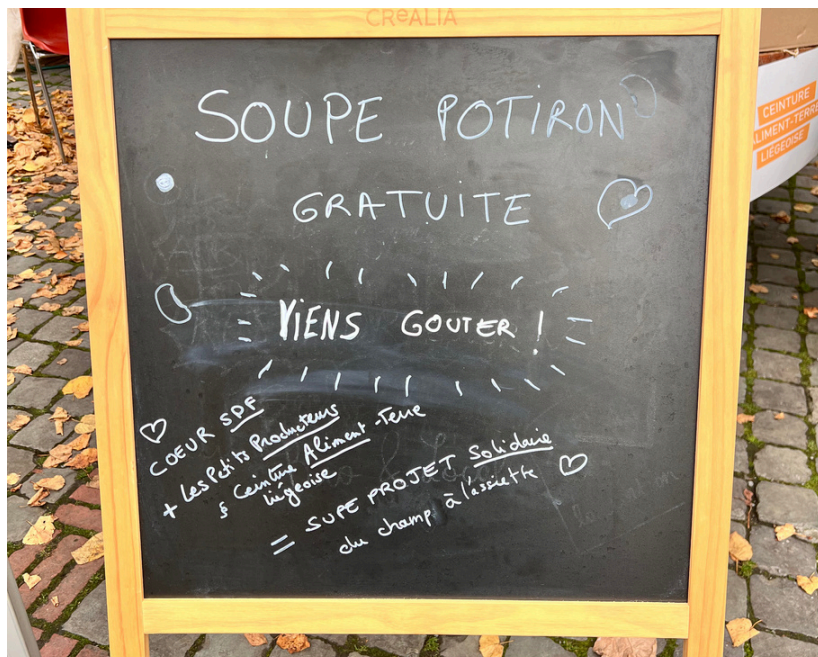 CReALIA
SOUPE POTIRON
GRATUITE
VIENS GOUTER !
COEUR SDF
+ Les Petits Producteurs
& Ceinture Aliment-Terre
liégeoise
= SUPE PROJET Solidaire
du champ à l'assiette
CEINTURE
ALIMENT-TERRE
LIÉGEOISE